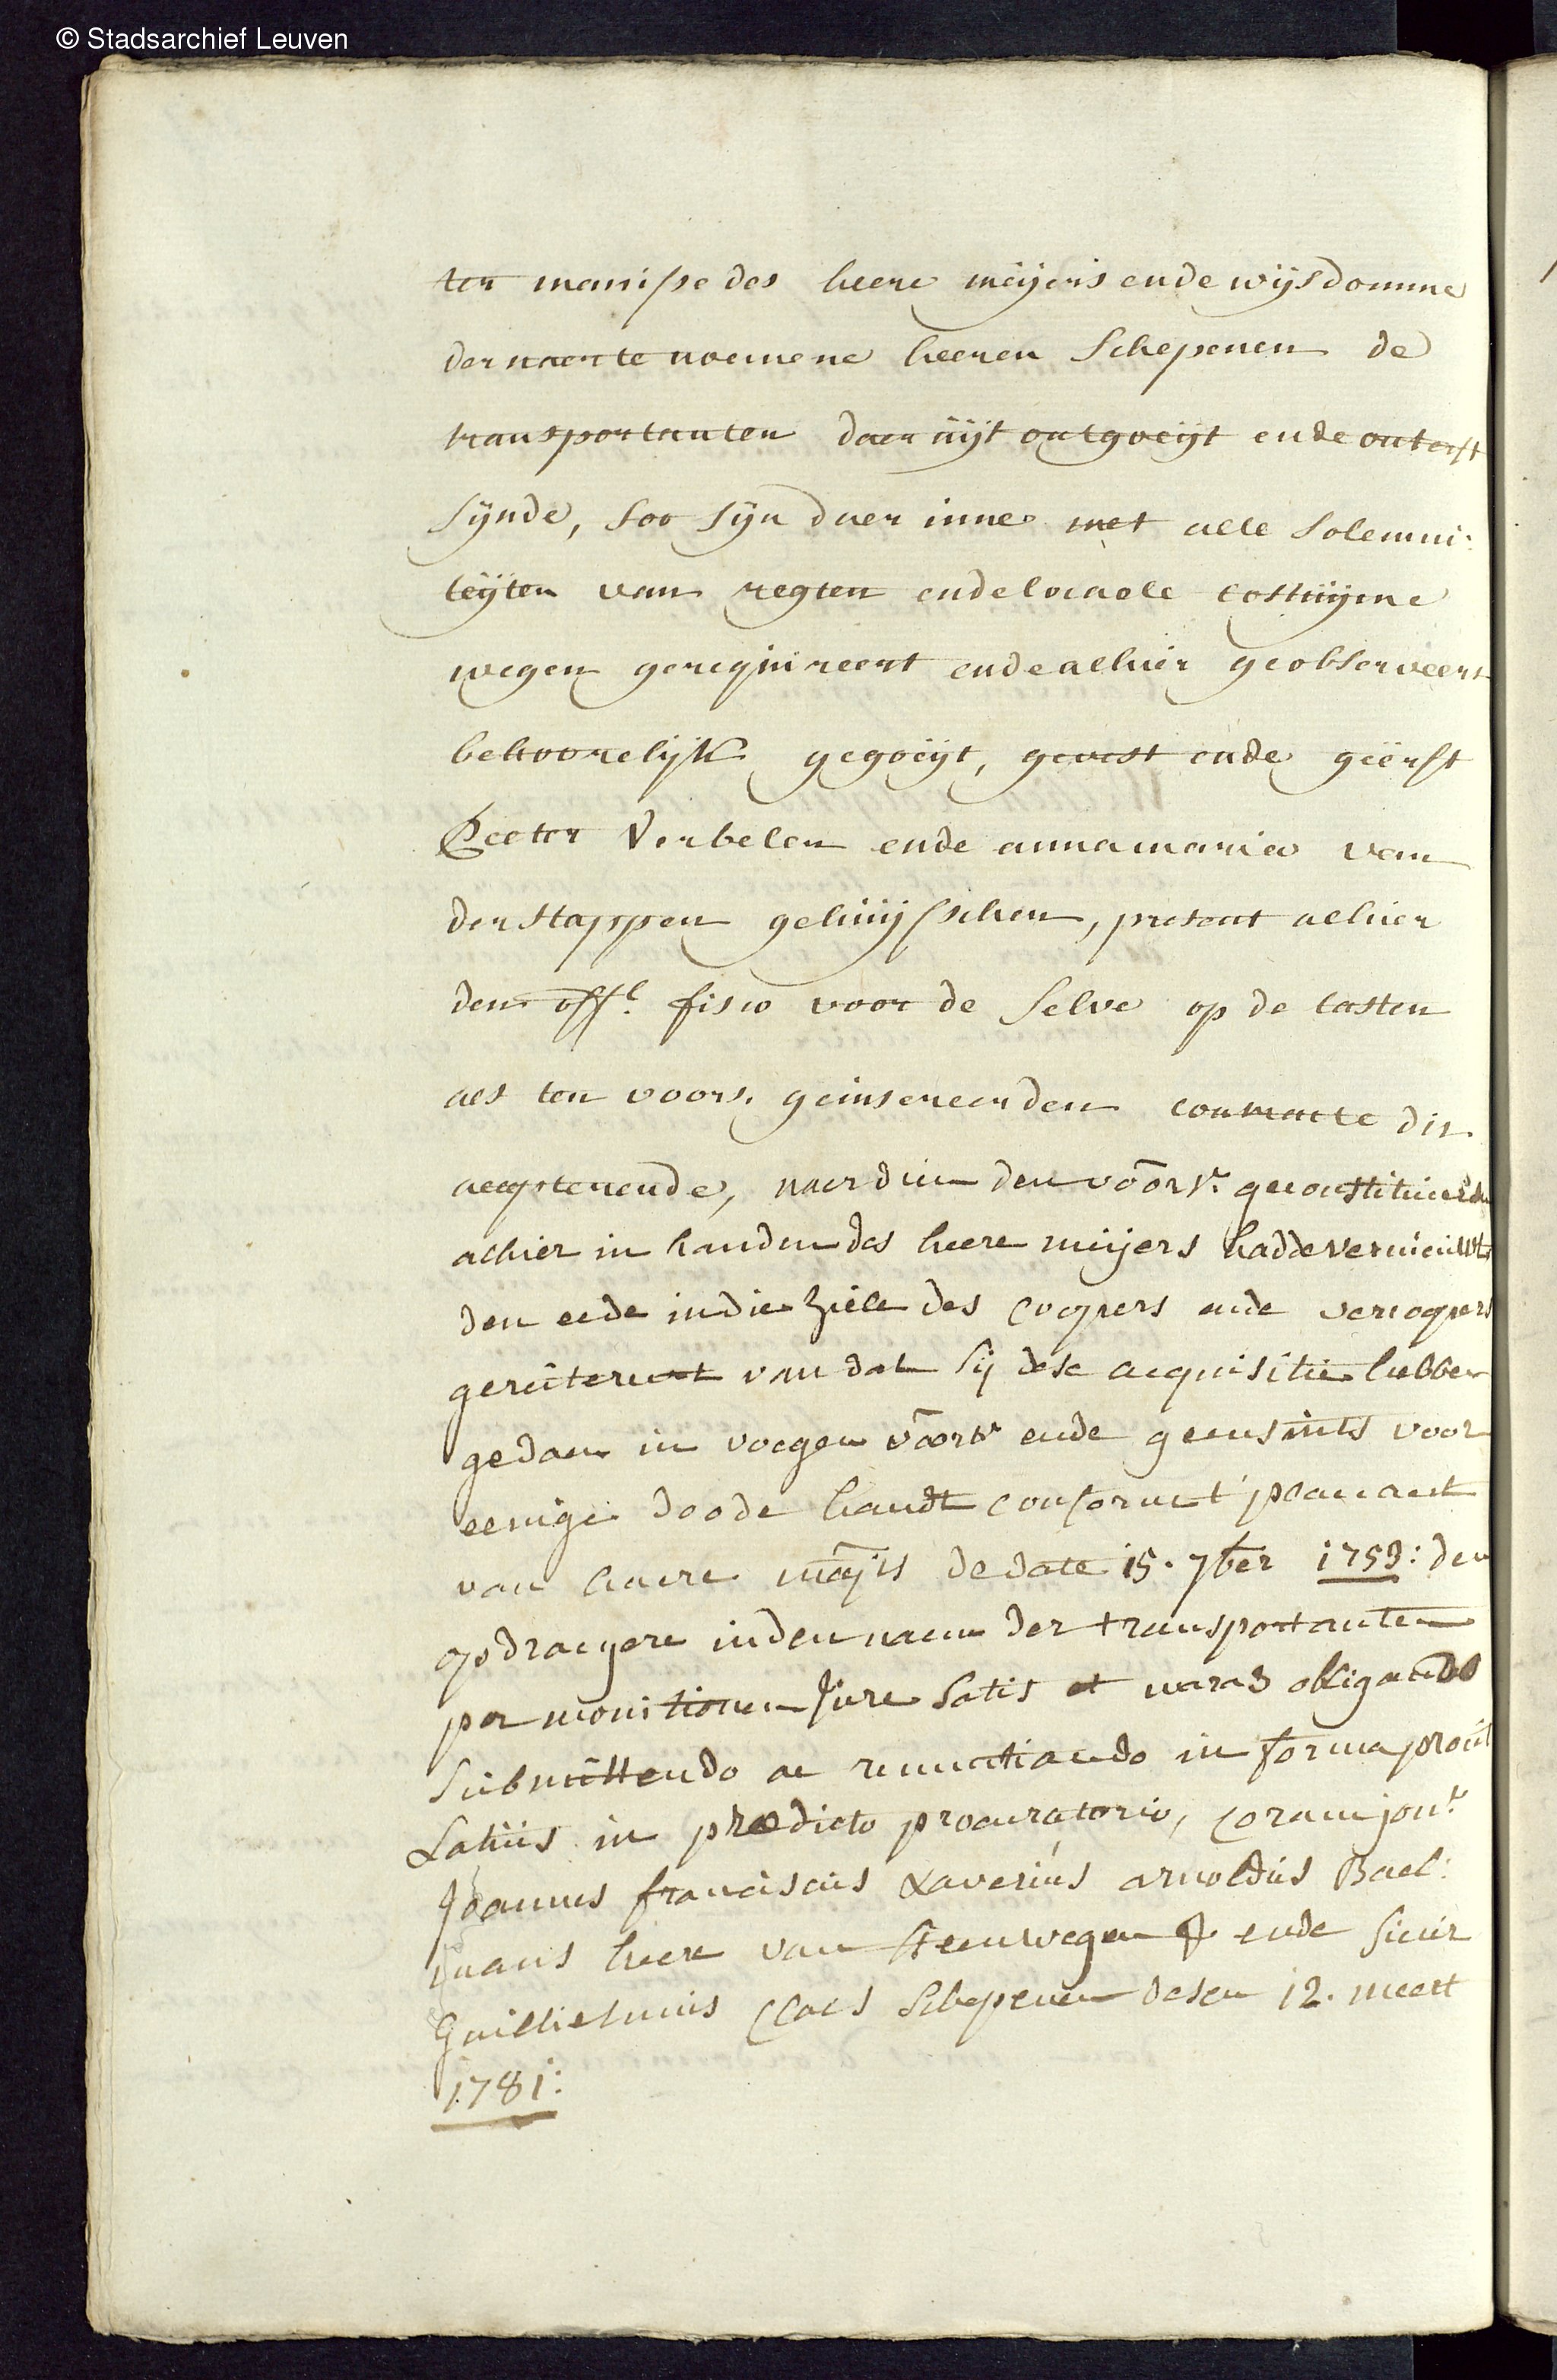 © Stadsarchief Leuven
ter manisse des heere meijers ende wijsdomme
der naer te noemene heeren Schepenen de
transportanten daer uijt ontgoeijt ende onterft
sijnde, soo sijn daer inne met alle solemni:
teijten van regten ende locaele costuijme
wegen gerequireert ende alhier geobserveert
behoorelijk gegoeijt, gevest ende geërft
Peeter Verbelen ende anna maria van
der stappen gehuijsschen, present alhier
den offl. fisco voor de selve op de lasten
als ten voors. geinsereerden contracte dit
accepterende, naer dien den voors. geconstitueerden
alhier in handen des heere meijers hadde vernieuwt
den eede in die ziele des coopers ende vercopers
gereitereert van dat sij dese acquisitie hebben
gedaen in voegen voors. ende geensints voor
eenige doode handt conform t' placcaert
van haere majts de date 15. 7ber 1753: den
opdraegere in den naem der transportanten
per monitionem jure satis et waras obligando
submittendo ac renuntiando in forma proút
Latiús in prædicto procuratorio, coram jonr.
Joannes franciscús Xaveriús arnoldús Bael:
mans heere van Steenwegen & ende sieúr
Guillielmús Claes Schepenen desen 12. meert
1781: